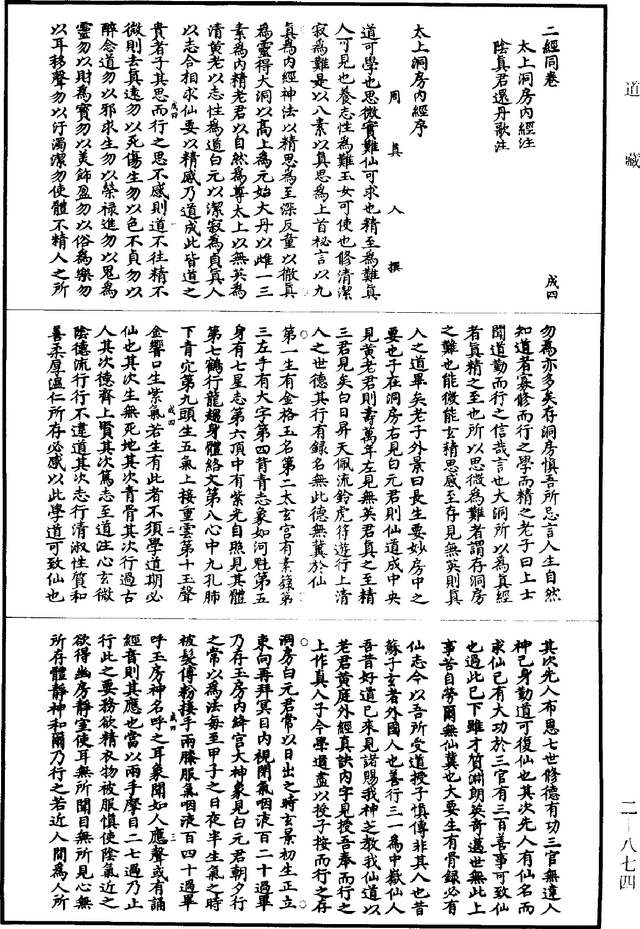 道藏
二經同卷
成四
太上洞房內經注
陰真君還丹歌注
太上洞房內經序
周真人撰
道可學也思微實難仙可求也精至為難真
人可見也養志性為難玉女可使也修清潔
寂為難是以八素以真思為上首祕言以九
真為內經神法以精思為至深反童以徹真
為靈得大洞以高上為元始大丹以雌一三
素為內精老君以自然為尊太上以無英為
清黃老以志性為道白元以潔寂為貞真人
以志令相求仙要以精感乃道成此皆道之
貴者子其思而行之思不感則道不往精不
微則去真遠勿以死傷生勿以色不貞勿以
醉念道勿以邪求生勿以榮祿進勿以思為
靈勿以財為寶勿以美飾盈勿以俗為樂勿
以耳移聲勿以汙濁潔勿使體不精人之所
勿為亦多矣存洞房慎吾所忌言人生自然
知道者寡修而行之學而精之老子曰上士
聞道勤而行之信哉言也大洞所以為真經
者真精之至也所以思微為難者謂存洞房
之難也能微能玄精思感至存見無英則真
人之道畢矣老子外景曰長生要妙房中之
要也子在洞房右見白元君則仙道成中央
見黃老君則壽萬年左見無英君真之至精
三君見矣白日昇天佩流鈴虎符遊行上清
人之世德其行有錄名無此德無冀於仙
第一生有金格玉名第二太玄宫有素籙第
三左手有大字第四背青志象如河魁第五
身有七星志第六頂中有紫光自照見其體
第七鶴行龍趨身體絡文第八心中九孔肺
下青穴第九頭生五氣上接重雲第十玉聲
金響口生紫氣若生有此者不須學道期必
仙也其次生無死地其次青骨其次行過古
人其次德齊上賢其次篤志至道注心玄微
陰德流行行不違道其次志行清淑性質和
善柔厚溫仁所存必感以此學道可致仙也
其次先人布恩七世修德有功三官無違人
神己身勤道可復仙也其次先人有仙名而
求仙已有大功於三官有三百善事可致仙
也過此已下雖才質淵朗英奇邁世無此上
事苦自勞爾無仙冀也大要生有骨錄必有
仙志令以吾所受道授子慎傳非其人也昔
蘇子玄者外國人也善行三一為中嶽仙人
吾昔好道已來見諸賜我神芝教我仙道以
老君黃庭外經真訣內字見授吾奉而行之
上作真人子今學道盡以授子按而行之存
洞房白元君常以日出之時玄景初生正立
東向再拜冥目內視閉氣咽液百二十過畢
乃存玉房內絳宮大神象見白元君朝夕行
之常以為法每至甲子之日夜半生氣之時
被髮傅粉接手兩膝服氣咽液百四十過畢
呼玉房神名呼之耳象聞如人應聲或有誦
經音則其應也當以兩手摩目二七過乃止
行此之要務欲精衣物被服慎使陰氣近之
欲得幽房靜室使耳無所聞目無所見心無
所存體靜神和爾乃行之若近人間為人所
成四
二
成四
三
二一八七四